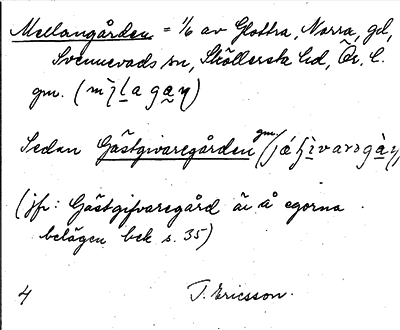 Mellangården = 1/6 av Glottra, Norra, gd,
Svennevads sn, Sköllersta hd, Ör. l.
gm. (
Sedan Gästgivaregården gm.
(jfr: Gästgifvaregård är å egorna
belägen bek s. 35)
4 T. Ericsson.